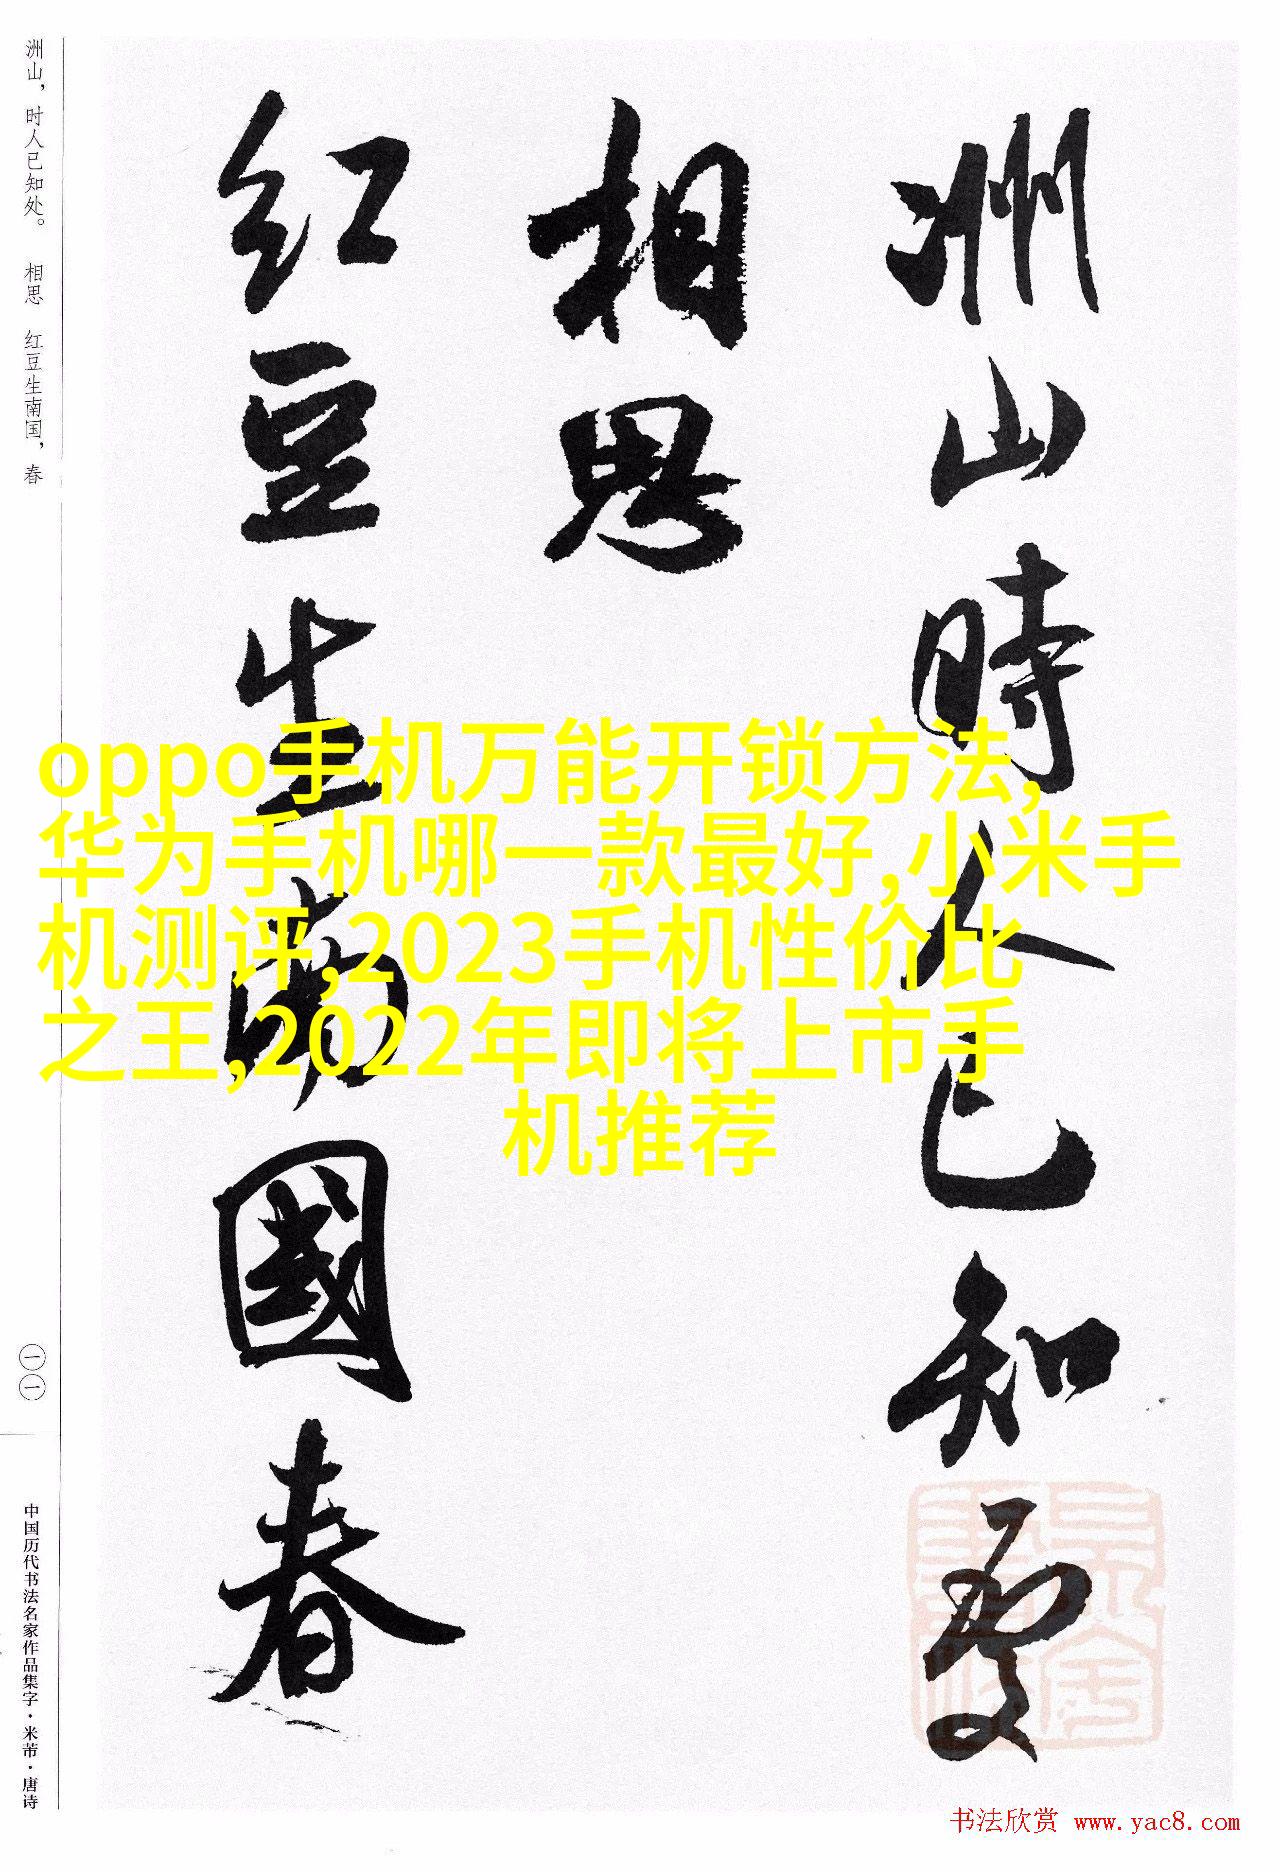 洲山，时人已知处。 相思 红豆生南国，春
洲山時人已知處
相思
红豆生南國春
oppo手机万能开锁方法,
华为手机哪一款最好,小米手
机测评,2023手机性价比
之王,2022年即将上市手
机推荐
一一
中国历代书法名家作品集字·米芾·唐诗
书法欣赏 www.yac8.com